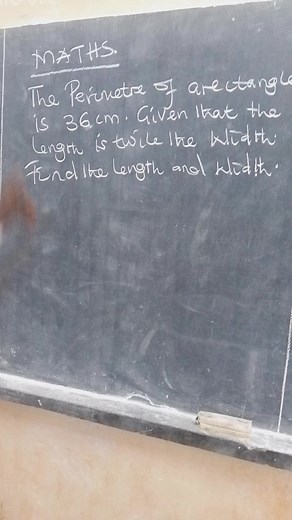 MATHS.
The Perimetre of arectangle
is 36cm. Given that the
length is twice the width.
Find the length and width.